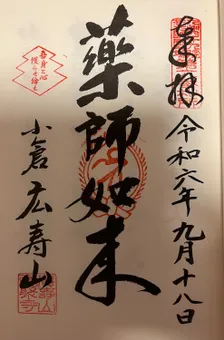 奉拝
令和六年九月十八日
薬師如来
小倉広寿山